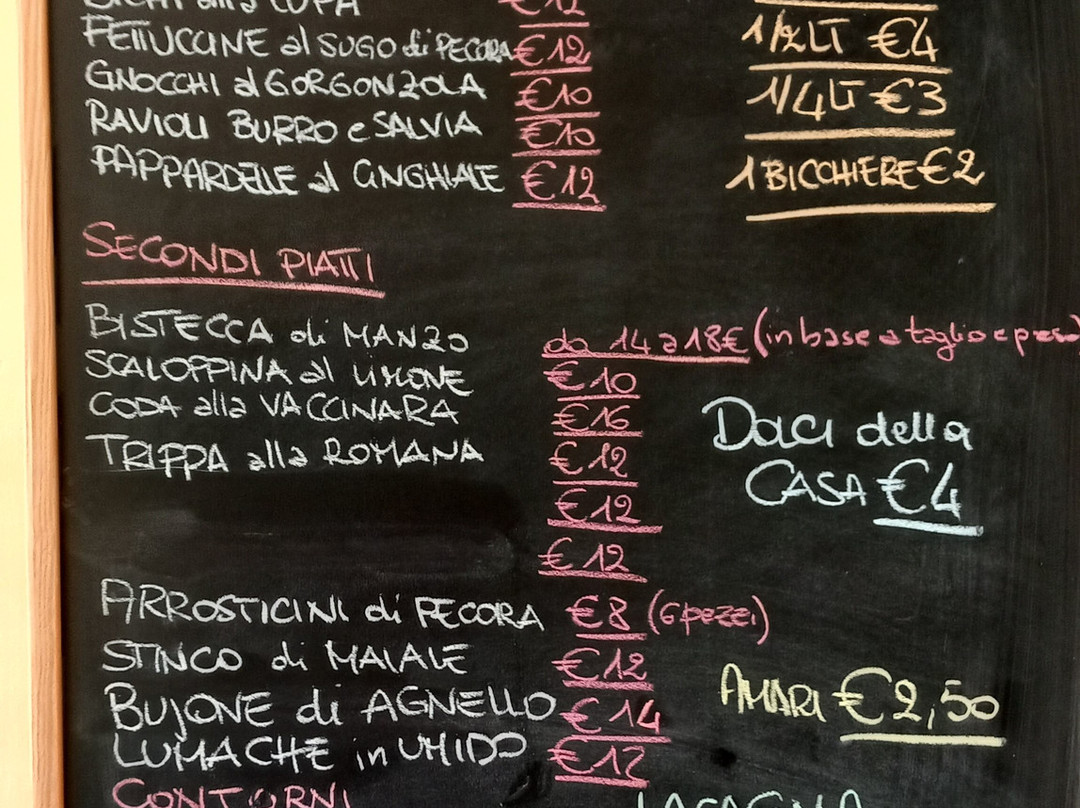 alla LUPA €12
FETTUCCINE al SUGO di PECORA €12
GNOCCHI al GORGONZOLA €10
RAVIOLI BURRO e SALVIA €10
PAPPARDELLE al CINGHIALE €12
1/2 LT €4
1/4 LT €3
1 BICCHIERE €2
SECONDI PIATTI
BISTECCA di MANZO da 14 a 18€ (in base a taglio e peso)
SCALOPPINA al LIMONE €10
CODA alla VACCINARA €16
TRIPPA alla ROMANA €12
€12
€12
DOLCI della
CASA €4
ARROSTICINI di PECORA €8 (6 pezzi)
STINCO di MAIALE €12
BUJONE di AGNELLO €14
LUMACHE in UMIDO €12
AMARI €2,50
CONTORNI
LASAGNA